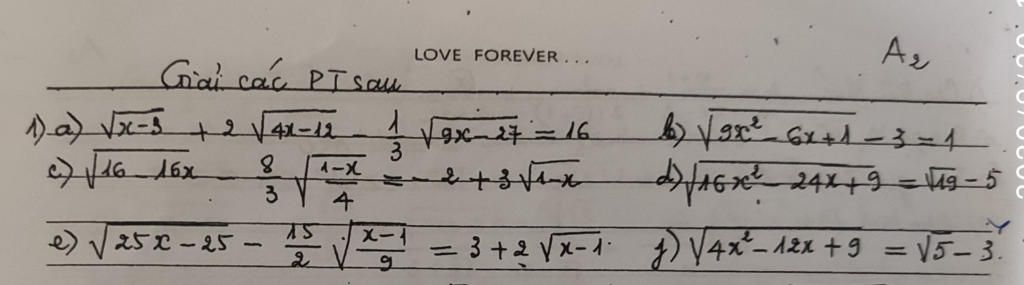 LOVE FOREVER...
A₂
Giải các PT sau
1) a) √(x-3) + 2√(4x-12) - 1/3 √(9x-27) = 16 b) √(9x² - 6x+1) - 3 = 1
c) √(16-16x) - 8/3 √((1-x)/4) = - 2 + 3√(1-x) d) √(16x² - 24x+9) = √19 - 5
e) √(25x-25) - 15/2 √((x-1)/9) = 3 + 2√(x-1). f) √(4x²-12x+9) = √5 - 3.